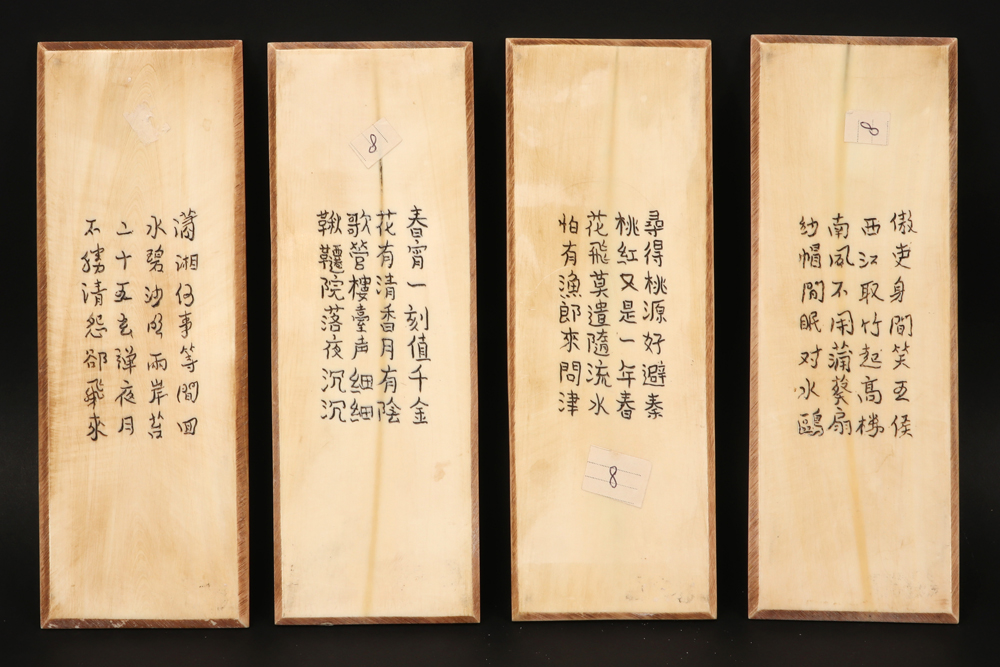 傲吏身間笑五侯
西江取竹起高楼
南風不用蒲葵扇
紗帽間眠对水鷗
8
尋得桃源好避秦
桃紅又是一年春
花飛莫遣隨流水
怕有漁郎來問津
8
春宵一刻值千金
花有清香月有陰
歌營樓臺声細細
鞦韆院落夜沉沉
8
瀟湘何事等間回
水碧沙明兩岸苔
二十五弦弹夜月
不勝清怨卻飛來